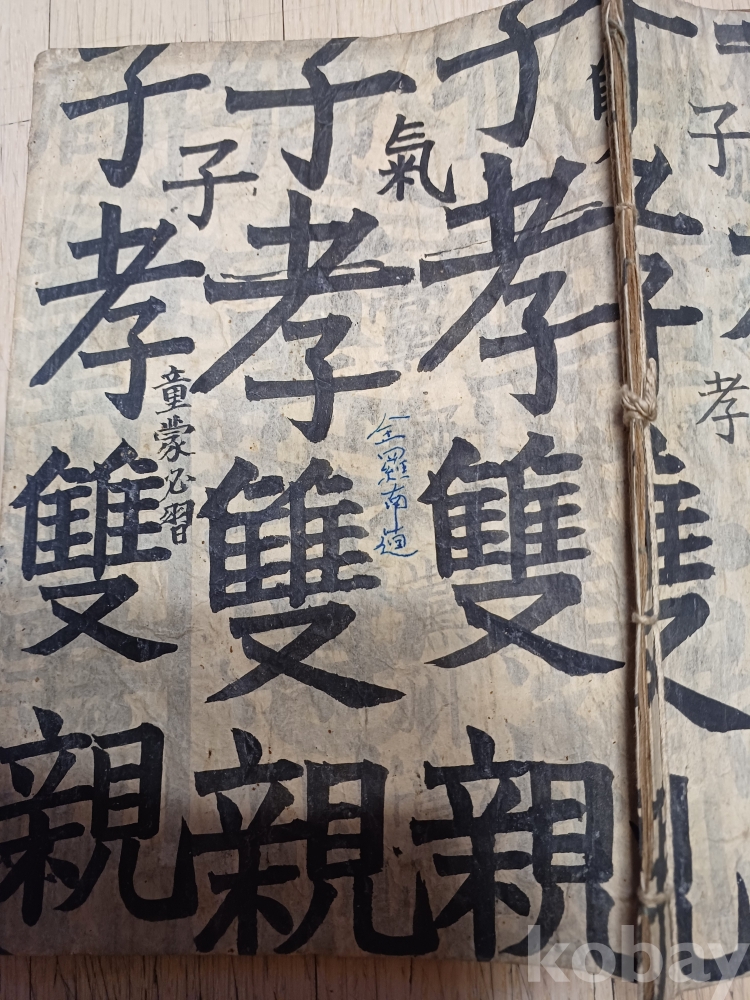 子
孝
孝雙親
子孝雙親
氣
全羅南道
子孝雙親
子
童蒙必習
子孝雙親
kobay